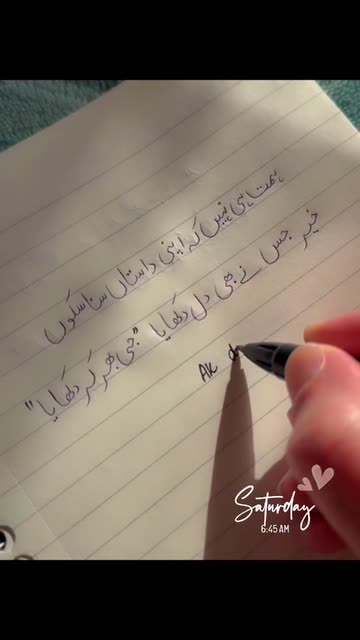 ہمت ہی نہیں کہ اپنی داستاں سنا سکوں
خیر جس نے بھی دل دکھایا "جی بھر کر دکھایا"
AK
Saturday
6:45 AM